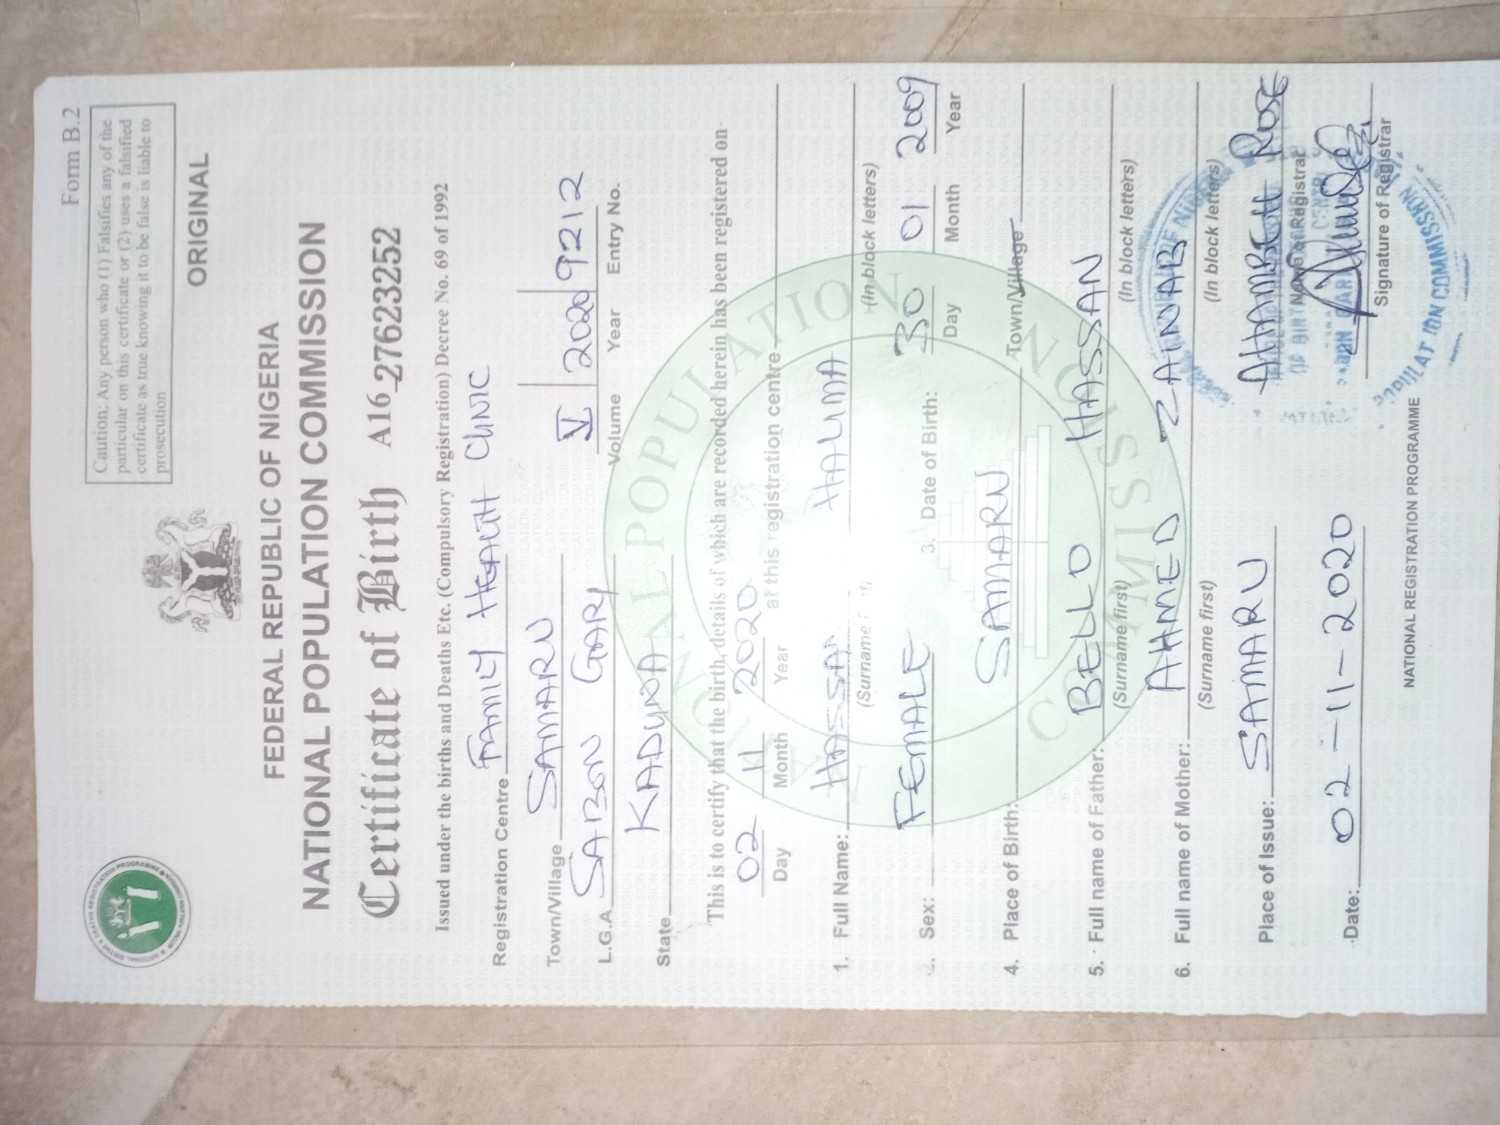 Form B.2
Caution: Any person who (1) Falsifies any of the
particular on this certificate or (2) uses a falsified
certificate as true knowing it to be false is liable to
prosecution
ORIGINAL
FEDERAL REPUBLIC OF NIGERIA
NATIONAL POPULATION COMMISSION
Certificate of Birth A16 27623252
Issued under the births and Deaths Etc. (Compulsory Registration) Decree No. 69 of 1992
Registration Centre FAMILY HEALTH CLINIC
Town/Village SAMARU V 2020 9212
L.G.A SABON GARI Volume Year Entry No.
State KADUNA
This is to certify that the birth, details of which are recorded herein has been registered on
02 11 2020 at this registration centre
Day Month Year
1. Full Name: HASSAN HALIMA
(Surname (In block letters)
Sex: FEMALE 3. Date of Birth: 30 01 2009
Day Month Year
4. Place of Birth: SAMARU Town/Village
5. Full name of Father: BELLO HASSAN
(Surname first) (In block letters)
6. Full name of Mother: AHMED ZAINAB
(Surname first) (In block letters)
Place of Issue: SAMARU ROSE
Name of Registrar
Date: 02-11-2020
Signature of Registrar
NATIONAL REGISTRATION PROGRAMME
NATIONAL POPULATION COMMISSION